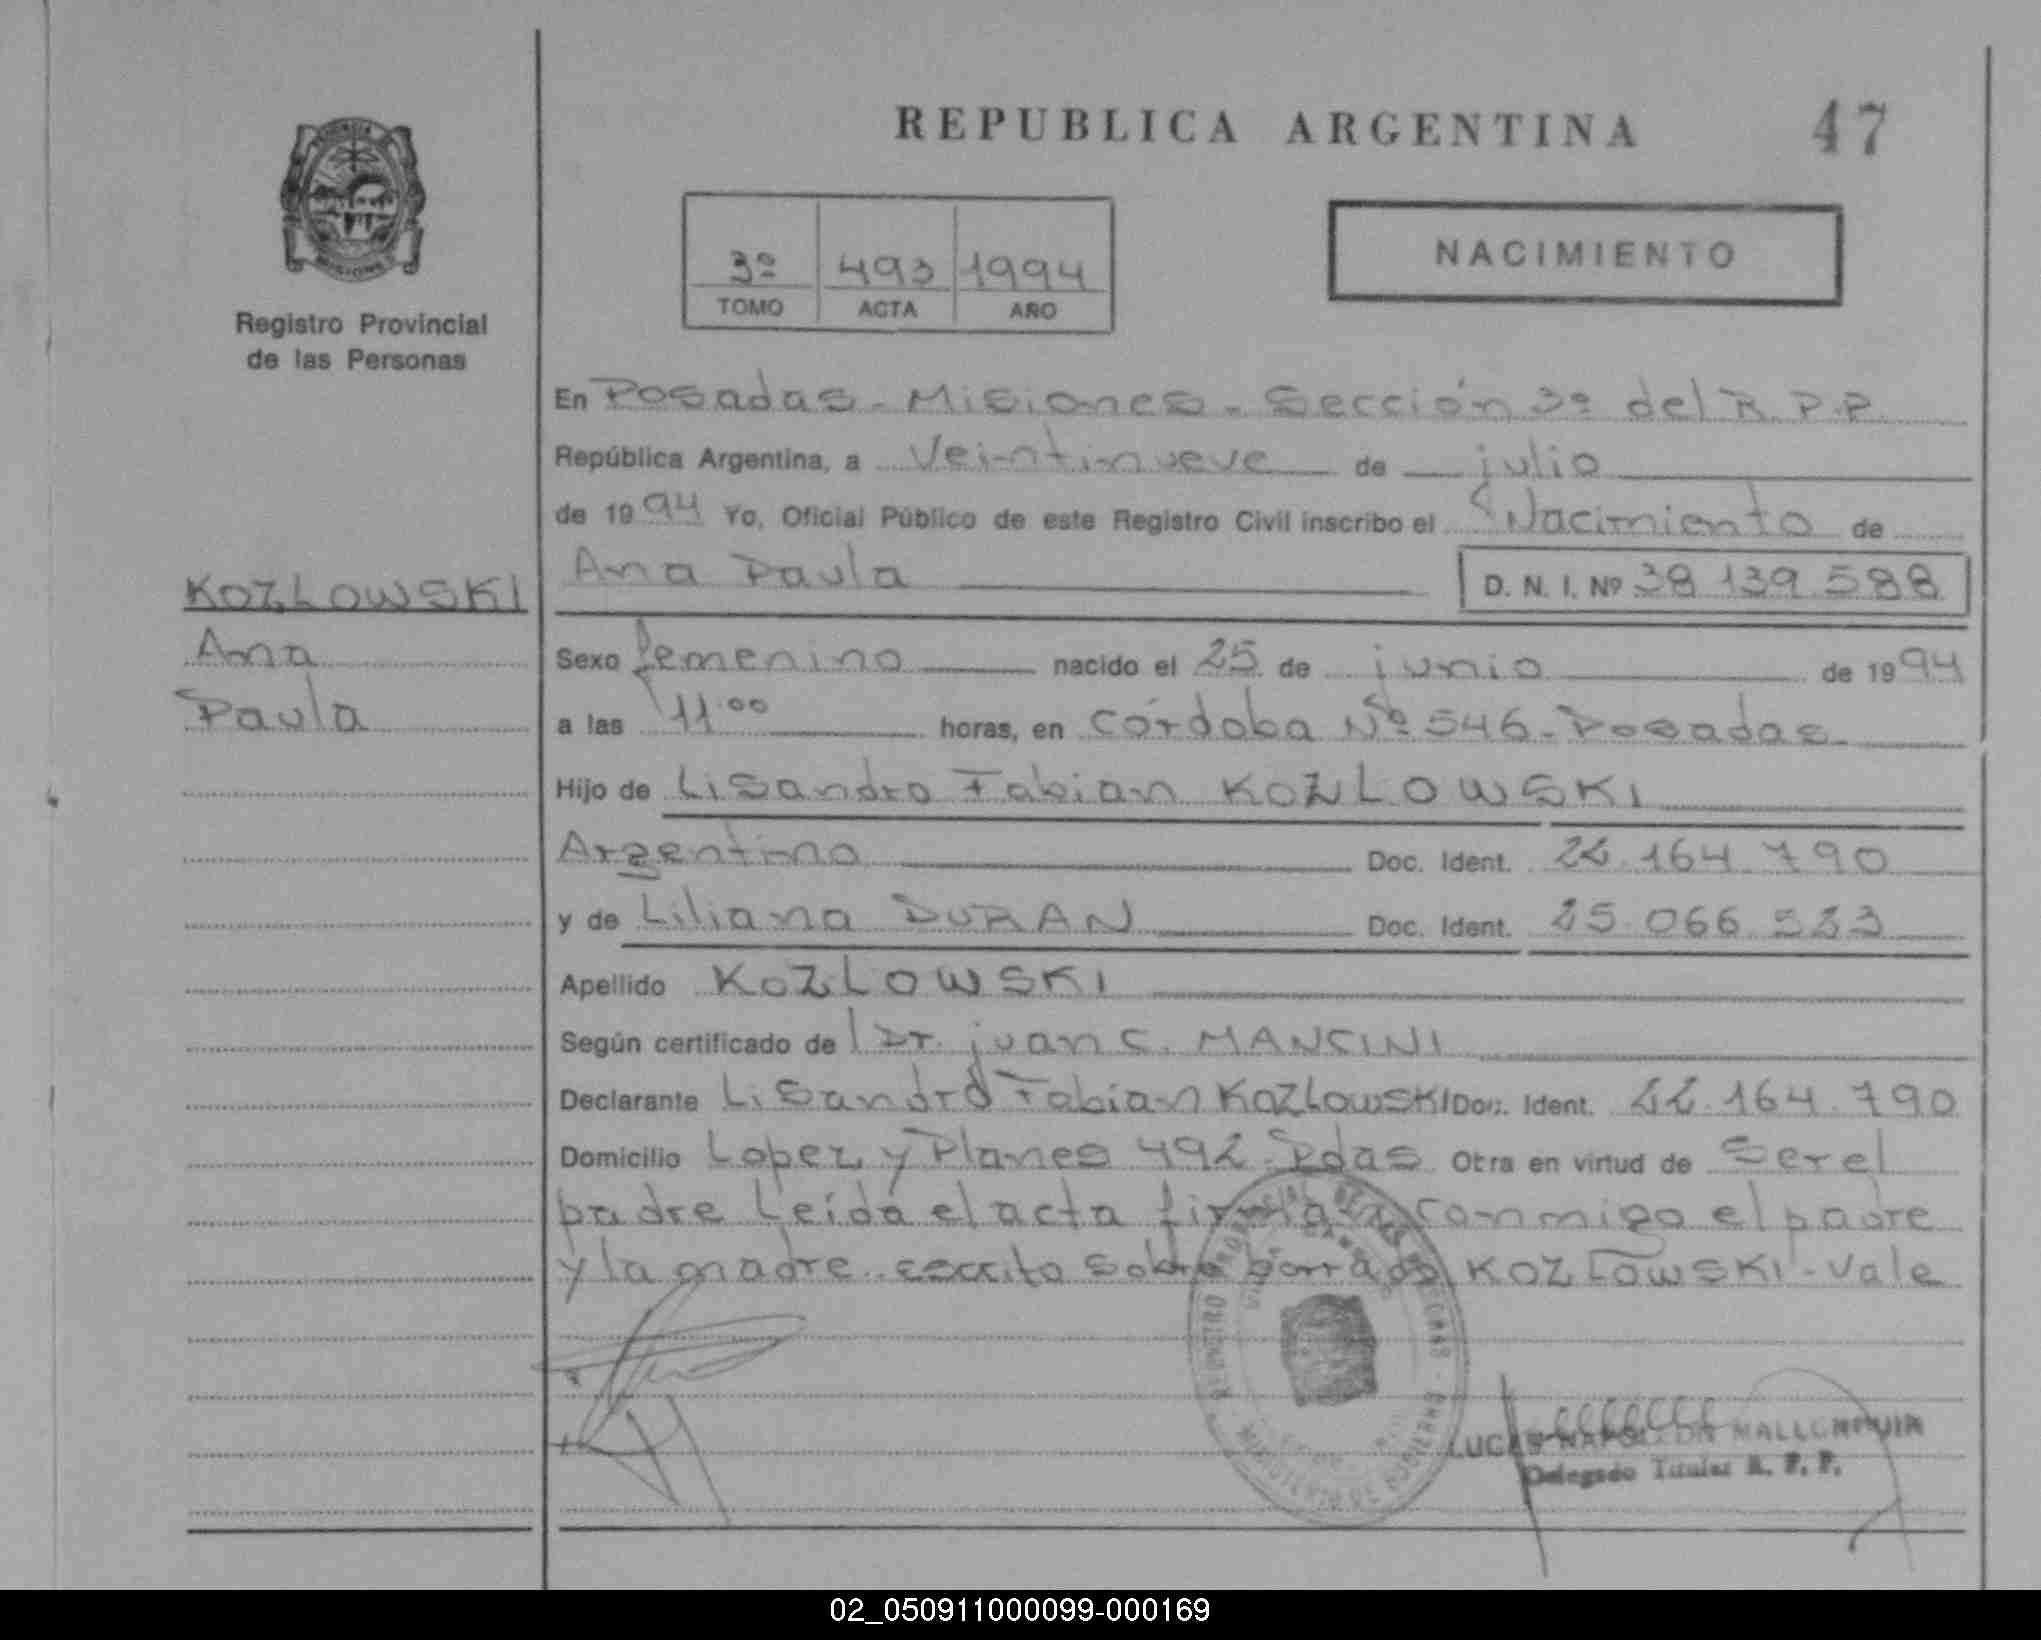 REPUBLICA ARGENTINA
47
3º 493 1994
TOMO ACTA AÑO
NACIMIENTO
MISIONES
Registro Provincial
de las Personas
KOZLOWSKI
Ana
Paula
En Posadas - Misiones - Sección 3º del R.P.P.
República Argentina, a Veintinueve de julio
de 1994 Yo, Oficial Público de este Registro Civil inscribo el Nacimiento de
Ana Paula D. N. I. Nº 38 139 588
Sexo femenino nacido el 25 de junio de 1994
a las 11:00 horas, en Córdoba Nº 546 - Posadas
Hijo de Lisandro Fabian KOZLOWSKI
Argentino Doc. Ident. 22.164.790
y de Liliana DURAN Doc. Ident. 25.066.523
Apellido KOZLOWSKI
Según certificado de l Dr. juan C. MANCINI
Declarante Lisandro Fabian KOZLOWSKI Doc. Ident. 22.164.790
Domicilio Lopez y Planes 492 - Pdas Otra en virtud de Ser el
padre Leída el acta firma conmigo el padre
y la madre escrito sobre borrado KOZLOWSKI - Vale
REGISTRO PROVINCIAL DE LAS PERSONAS - MINISTERIO DE GOBIERNO
LUCAS NAPOLEON
Delegado Titular R. P. P.
02_050911000099-000169